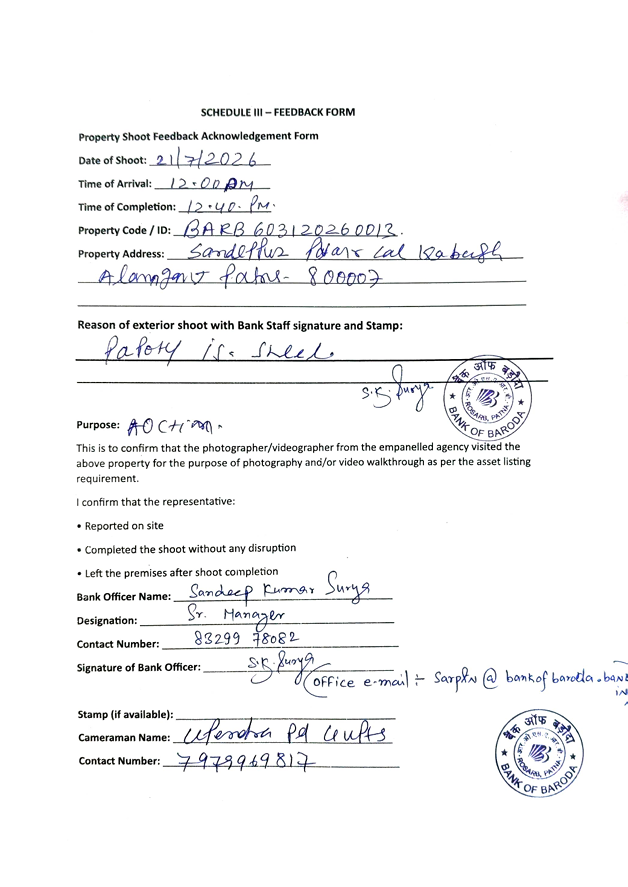 SCHEDULE III – FEEDBACK FORM
Property Shoot Feedback Acknowledgement Form
Date of Shoot: 21/7/2026
Time of Arrival: 12.00 PM
Time of Completion: 12.40. PM.
Property Code / ID: BARB603120260013.
Property Address: Lal
800007
Reason of exterior shoot with Bank Staff signature and Stamp:
is.
S.K. Surya
बैंक ऑफ बड़ौदा
ROSARB, PATNA
BANK OF BARODA
Purpose: AOCtion.
This is to confirm that the photographer/videographer from the empanelled agency visited the
above property for the purpose of photography and/or video walkthrough as per the asset listing
requirement.
I confirm that the representative:
• Reported on site
• Completed the shoot without any disruption
• Left the premises after shoot completion
Bank Officer Name: Sandeep Kumar Surya
Designation: Sr. Manager
Contact Number: 83299 78082
Signature of Bank Officer: S.K. Surya
(office e-mail :- SarpPN @ bankofbaroda.bank
in
Stamp (if available):
Cameraman Name: Upendra Pd Gupta
Contact Number: 7979969817
बैंक ऑफ बड़ौदा
ROSARB, PATNA
BANK OF BARODA